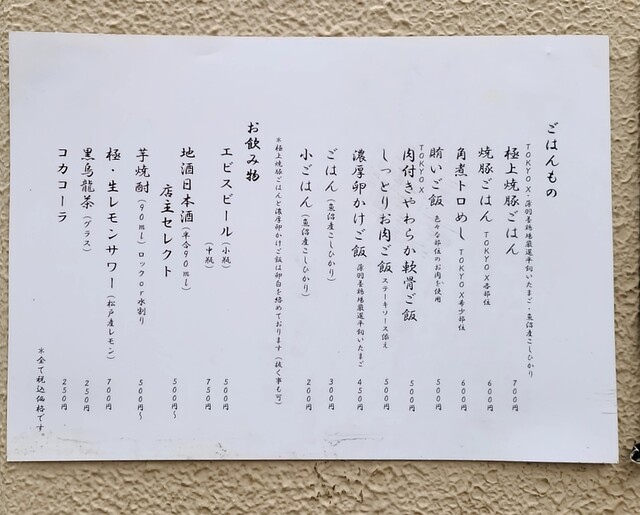 ごはんもの
TOKYO X・薄羽養鶏場厳選平飼いたまご・魚沼産こしひかり
極上焼豚ごはん 700円
焼豚ごはん TOKYO X各部位 600円
角煮トロめし TOKYO X希少部位 600円
賄いご飯 色々な部位のお肉を使用 500円
TOKYO X
肉付きやわらか軟骨ご飯 500円
しっとりお肉ご飯 ステーキソース添え 500円
濃厚卵かけご飯 薄羽養鶏場厳選平飼いたまご 450円
ごはん(魚沼産こしひかり) 300円
小ごはん(魚沼産こしひかり) 200円
※極上焼豚ごはんと濃厚卵かけご飯は卵白を絡めております(抜く事も可)
お飲み物
エビスビール(小瓶) 500円
(中瓶) 750円
地酒日本酒(半合90ml)
店主セレクト 500円～
芋焼酎(90ml)ロックor水割り 500円～
極・生レモンサワー(松戸産レモン) 700円
黒烏龍茶(グラス) 250円
コカコーラ 250円
※全て税込価格です。